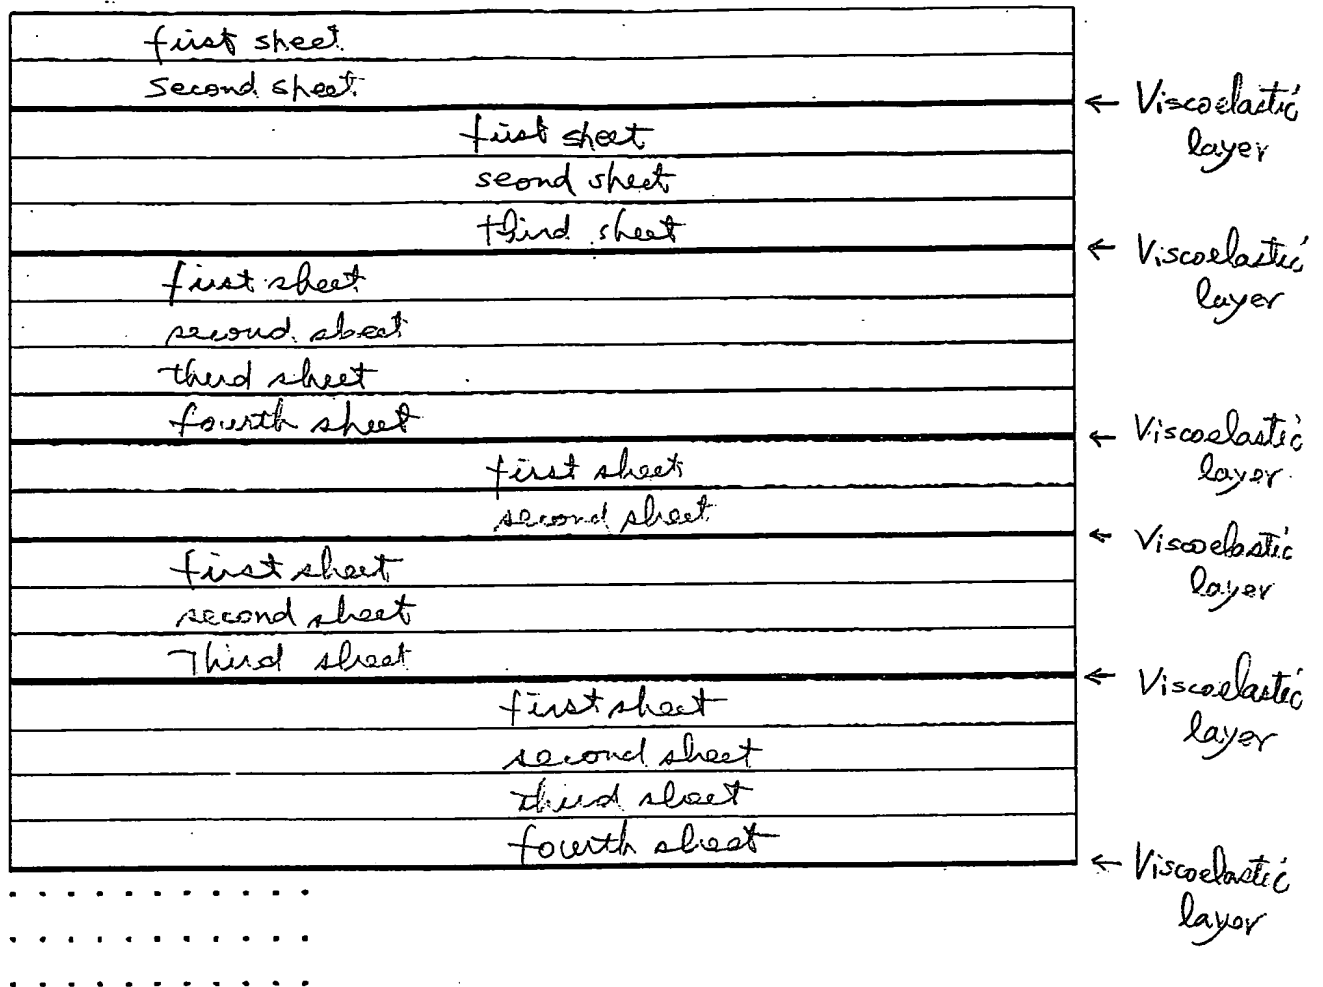 first sheet
second sheet
← Viscoelastic
layer
first sheet
seond sheet
third sheet
← Viscoelastic
layer
first sheet
second sheet
third sheet
fourth sheet
← Viscoelastic
layer
first sheet
second sheet
← Viscoelastic
layer
first sheet
second sheet
Third sheet
← Viscoelastic
layer
first sheet
second sheet
third sheet
fourth sheet
← Viscoelastic
layer